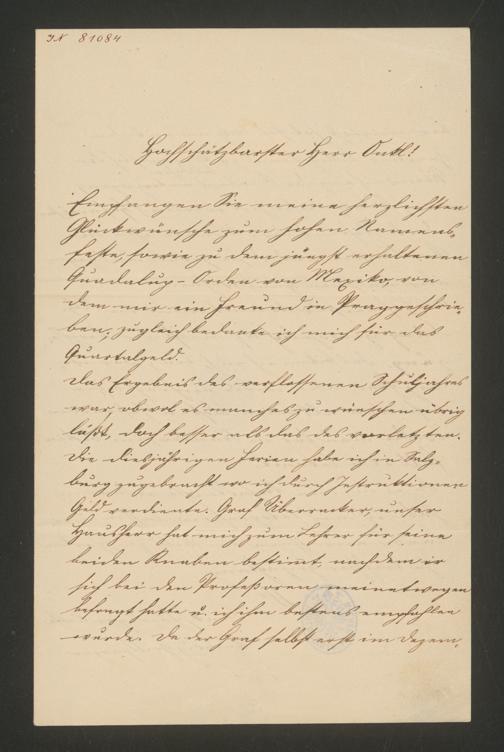 IN 81084
Hochschätzbarster Herr Onkl!
Empfangen Sie meine herzlichsten
Glückwünsche zum hohen Namens-
feste, sowie zu dem jüngst erhaltenen
Guadalup-Orden von Mexiko, von
dem mir ein Freund in Prag geschrie-
ben; zugleich bedanke ich mich für das
Quartalgeld.
Das Ergebnis des verflossenen Schuljahres
war, obwol es manches zu wünschen übrig
läßt, doch besser als das des vorletzten.
Die diesjährigen Ferien habe ich in Salz-
burg zugebracht wo ich durch Instruktionen
Geld verdiente. Graf Überracker, unser
Hausherr hat mich zum Lehrer für seine
beiden Knaben bestimt, nachdem er
sich bei den Profeßoren meinetwegen
befragt hatte u. ich ihm bestens empfohlen
wurde. Da der Graf selbst erst im Dezem-